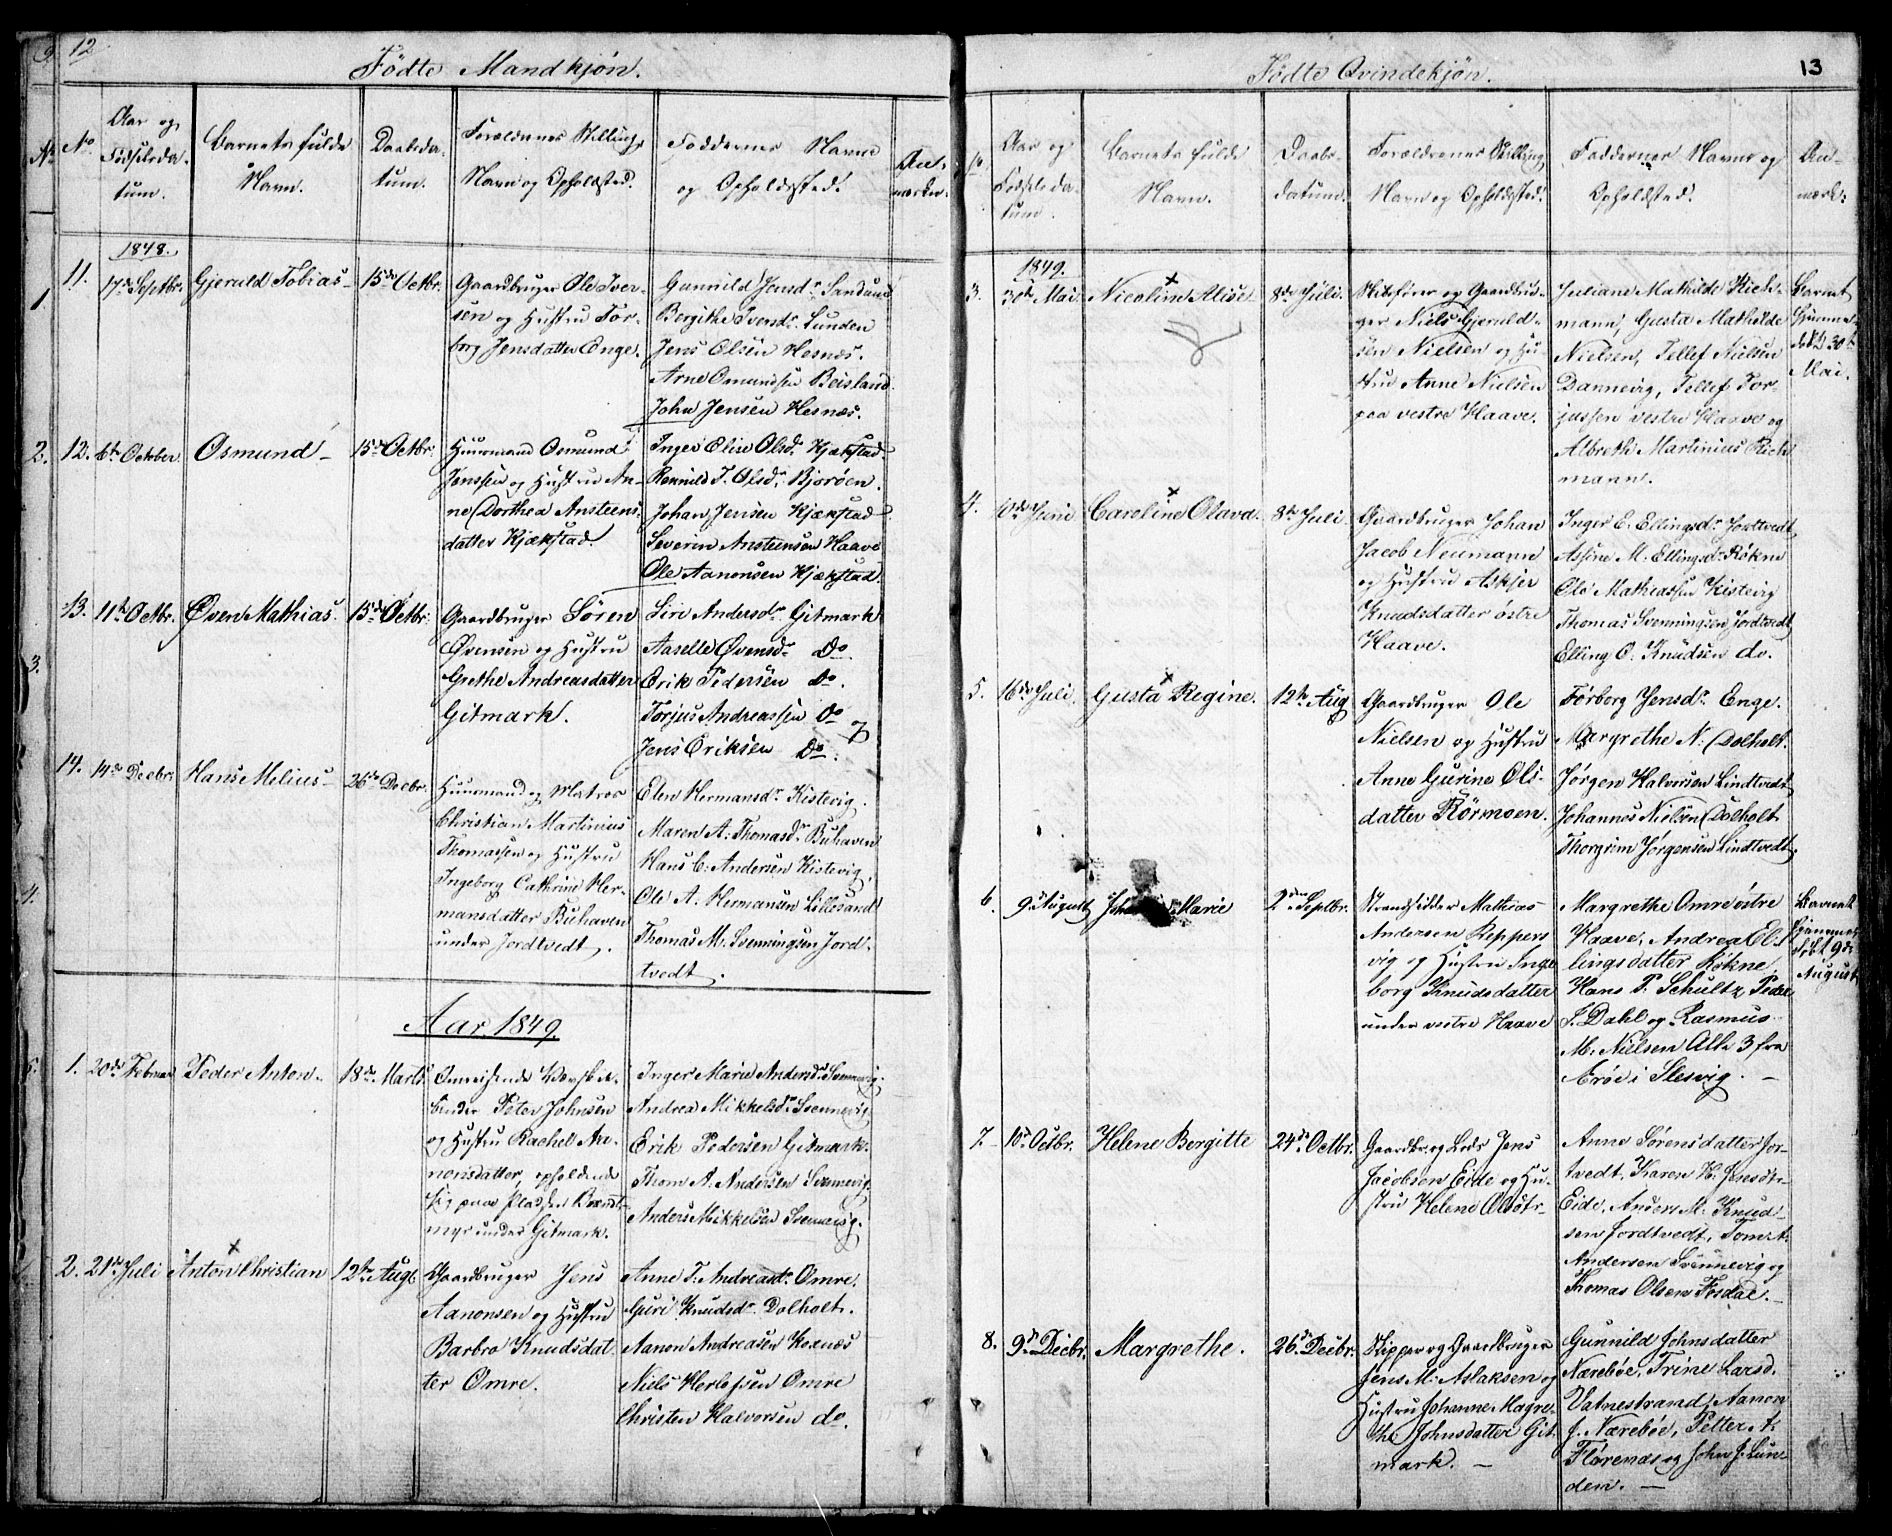 12
Fødte Mandkjøn.
No
Aar og Fødselsdatum.
Barnets fulde Navn.
Daabsdatum.
Forældrenes Stilling, Navn og Opholdsted.
Faddernes Navne og Opholdssted.
Anmærkn.
1848.
11.
17de Septbr.
Gjeruld Tobias
15de Octbr.
Gaardbruger Ole Iver-
sen og Hustru Tor-
borg Jensdatter Enge.
Gunnild Jensdr. Sandum
Bergithe Iversdr. Lunden
Jens Olsen Hesnæs.
Arne Omundsen Beisland
John Jensen Hesnæs.
12.
6te October.
Osmund
15de Octbr.
Huusmand Osmund
Jenssen og Hustru An-
ne Dorthea Ansteens-
datter Kjækstad.
Inger Elise Olsdr. Kjækstad
Rennild T. Olsdr. Bjorøen.
Johan Jensen Kjækstad
Severin Ansteensen Haave
Ole Aanonsen Kjækstad.
13.
11te Octbr.
Øven Mathias
15de Octbr.
Gaardbruger Søren
Øvensen og Hustru
Grethe Andreasdatter
Gitmark.
Siri Andersdr. Gitmark
Aaselle Øvensdr. Do.
Erik Pedersen Do.
Torjus Andreassen Do
Jens Eriksen Do.
14.
14de Decbr.
Hans Melius
26de Decbr.
Huusmand og Matros
Christian Martinius
Thomassen og Hustru
Ingeborg Cathrine Her-
mansdatter Buhaven
under Jordtvedt.
Elen Hermansdr. Kistevig.
Maren A. Thomasdr. Buhaven
Hans C. Andersen Kistevig,
Ole A. Hermansen Lillesand
Thomas M. Svenningsen Jord-
tvedt.
Aar 1849.
1.
20de Februar
Peder Anton
18de Marts
Omreisende
Peter Johnsen
og Hustru Rachel Aa-
nonsdatter, opholdende
sig paa Pladsen
myr under Gitmark.
Inger Marie Andersdr. Svennevig.
Andrea Mikkelsdr. Svennevig
Erik Pedersen Gitmark.
Thom A. Andersen Svennevig.
Anders Mikkelsen Svennevig.
2.
21de Juli
Anton Christian
12te Augt.
Gaardbruger Jens
Aanonsen og Hustru
Barbro Knudsdat-
ter Omre.
Anne T. Andreasdr. Omre.
Guri Knudsdr. Dolholt.
Aanon Andreasen Koxnæs
Niels Herlofsen Omre
Christen Halvorsen do.
13
Fødte Qvindekjøn.
Aar og Fødselsdatum.
Barnets fulde Navn.
Daabsdatum.
Forældrenes Stilling Navn og Opholdssted.
Faddernes Navne og Opholdsted.
Anmærk:
1849.
3.
30te Mai.
Nicoline Alise
8de Juli.
Skibsfører og Gaardbru-
ger Niels Gjeruld-
sen Nielsen og Hu-
stru Anne Nielsen
paa vestre Haave.
Juliane Mathilde Rich-
mann, Gusta Mathilde
Nielsen, Tellef Nielsen
Dannevig, Tellef Tor-
jussen vestre Haave og
Albreth Martinius Rich-
mann.
Barnet
hjemme-
døbt 30te
Mai.
4.
10de Juni
Caroline Olava.
8de Juli.
Gaardbruger Johan
Jacob Neumann
og Hustru Askjer
Knudsdatter østre
Haave.
Inger E. Ellingsdr. Jordtvedt
Assine M. Ellingsdr. Røkne
Ole Mathiassen Kistevig
Thomas Svenningsen Jordtvedt
Elling O. Knudsen do.
5.
16de Juli.
Gusta Regine.
12te Aug
Gaardbruger Ole
Nielsen og Hustru
Anne Gurine Ols-
datter Rørmoen.
Torborg Jensdr. Enge.
Margrethe N. Dolholt.
Jørgen Halvorsen Lindtvedt
Johannes Nielsen Dolholt
Thorgrim Jørgensen Lindtvedt.
6.
9de August
Marie
2den Septbr.
Strandsidder Mathias
Andersen Reppers-
vig og Hustru Inge-
borg Knudsdatter
under vestre Haave
Margrethe Omre østre
Haave, Andrea El-
lingsdatter Røkne,
Hans P. Schultz, Peder
S. Dahl og Rasmus
M. Nielsen Alle 3 fra
Ærøe i Slesvig.
Barnet
hjemme-
døbt 9de
August
7.
10de Octbr.
Helene Bergitte
24de Octbr.
Gaardbr. og Lods Jens
Jacobsen Eide og Hu-
stru Helene Olsdtr.
Anne Sørensdatter Jor-
tvedt, Karen H. Jensdtr.
Eide, Anders M. Knud-
sen Jordtvedt, Tom A.
Andersen Svennevig og
Thomas Olsen Fosdal.
8.
9de Decbr.
Margrethe.
26de Decbr.
Skipper og Gaardbruger
Jens M. Aslaksen og
Hustru Johanne Magre-
the Johnsdatter Git-
mark.
Gunnild Johnsdatter
Nærebøe, Trine Larsd.
Vatnestrand, Aanon
J. Nærebøe, Petter A.
Florenæs og John J. Lun-
den.